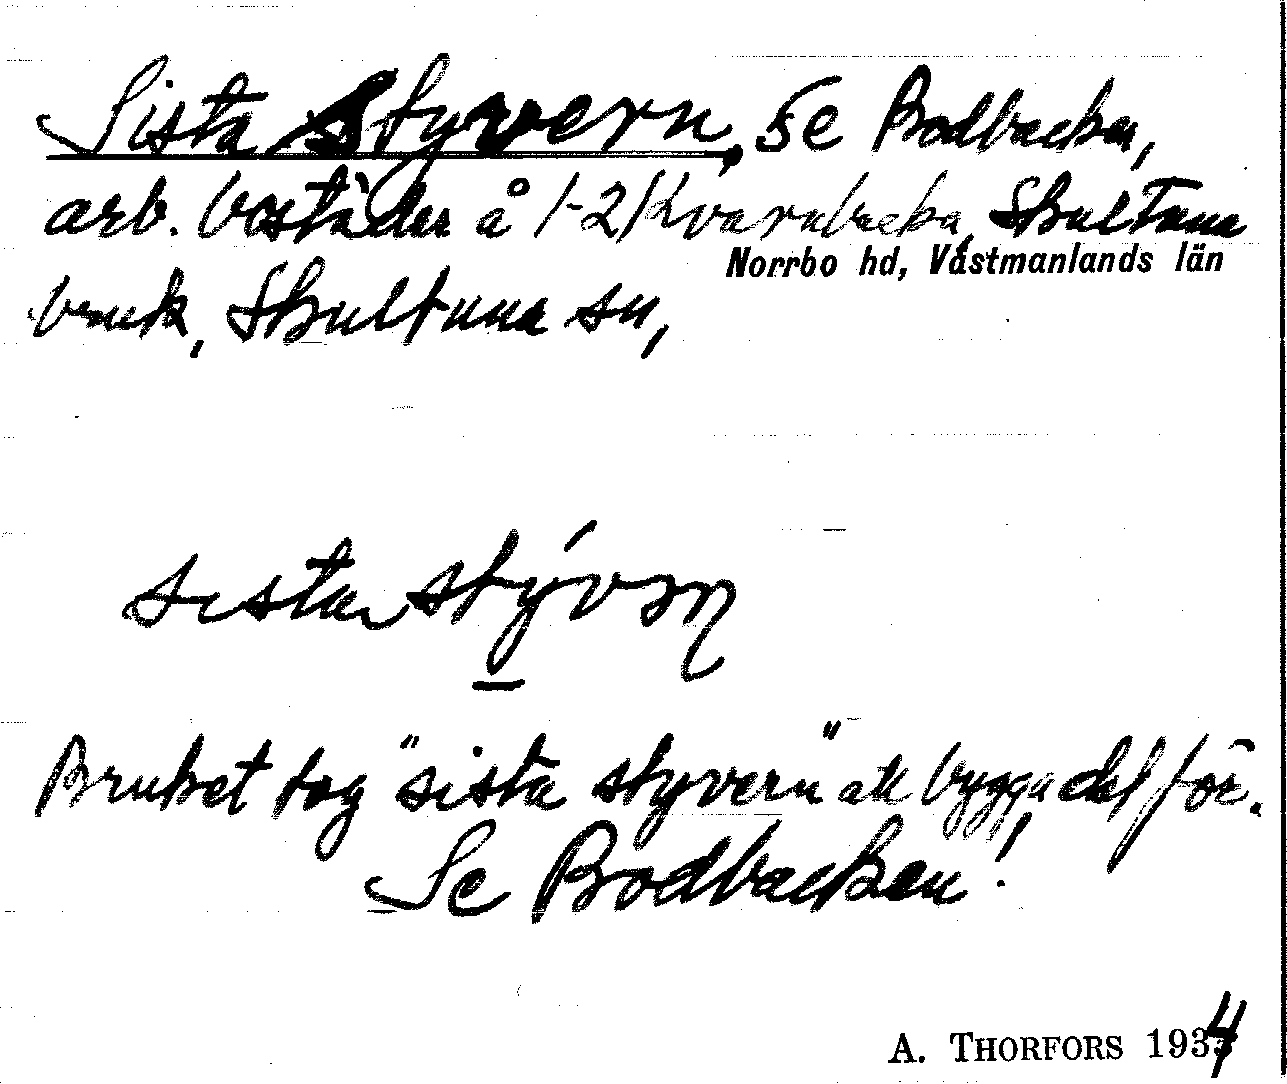 Sista Styvern, Se Bodbacken,
arb. bostäder å 1-2/ Kvarnbacka, Skultuna
Norrbo hd, Västmanlands län
bruk, Skultuna sn,
sista stývæɳ
Bruket tog "sista styvern" att bygga det för.
Se Bodbacken!
A. THORFORS 1934